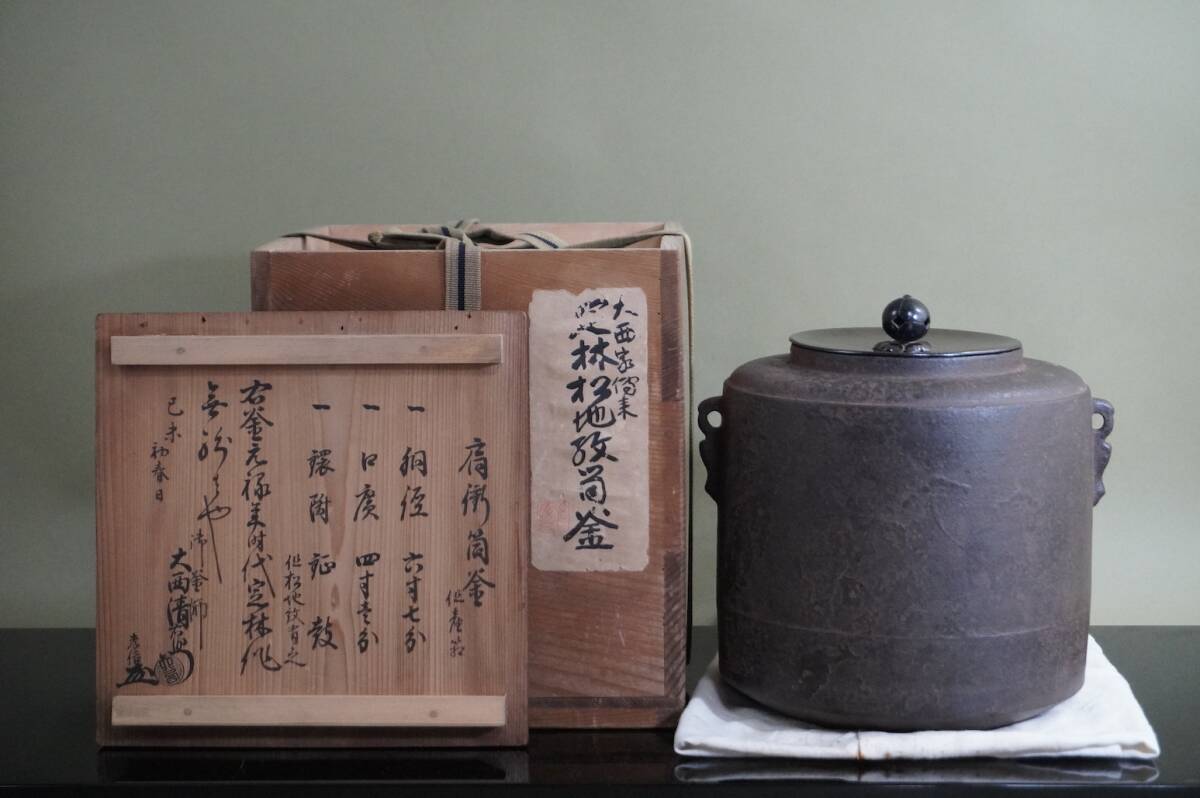 肩衝筒釜
一 胴径 六寸七分
一 口廣 四寸壱分
一 鐶附 鉦鼓
但松地紋有之
右釜元禄年時代定林作
無紛者也
己未初春日
御釜師
大西清右衛門
大西家傳来
定林松地紋筒釜